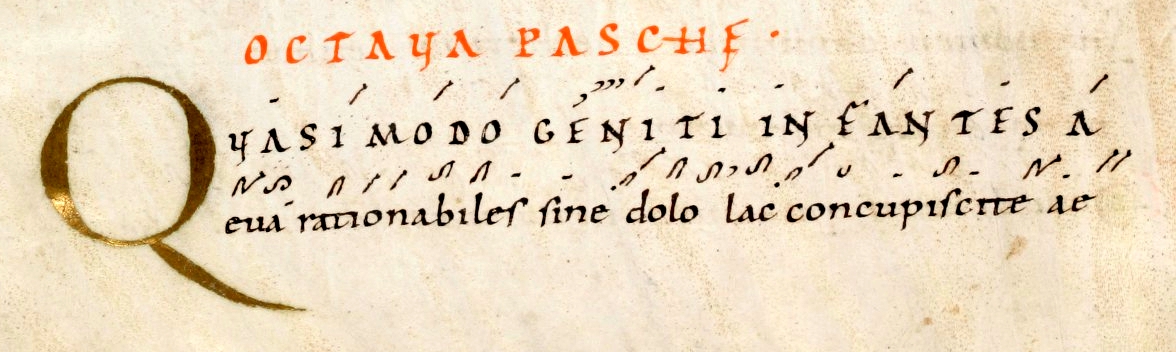 OCTAVA PASCHE.
QVASI MODO GENITI INFANTES A
eua rationabiles sine dolo lac concupiscite ae